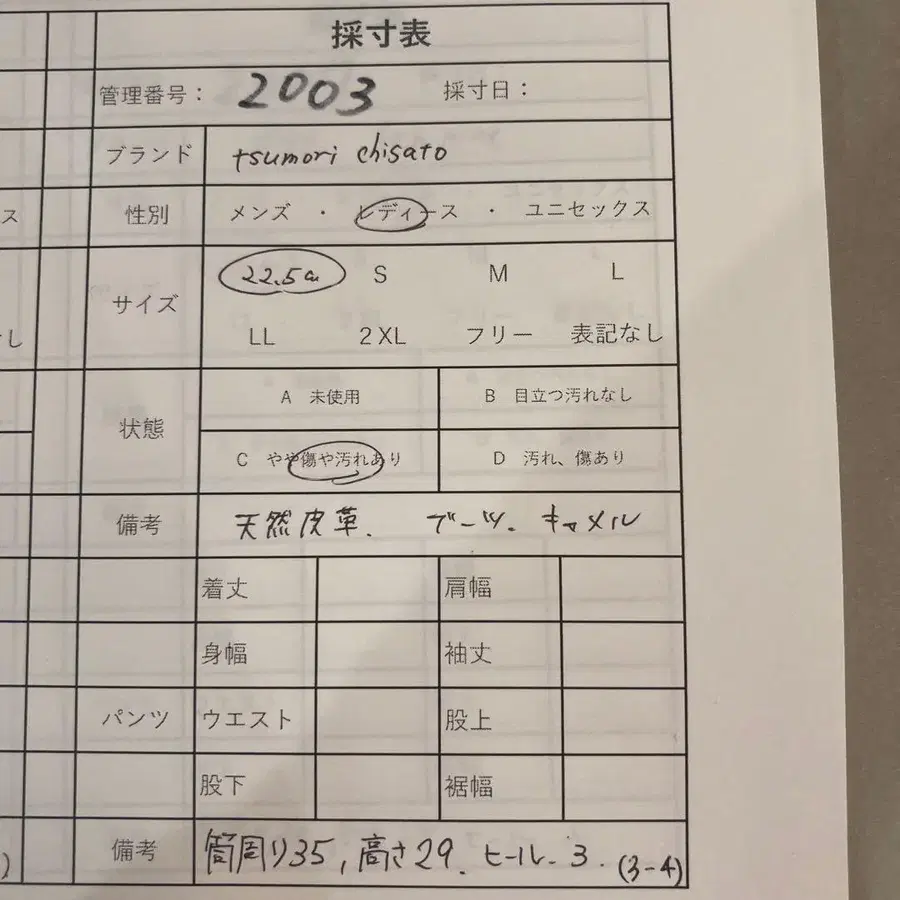 採寸表
管理番号： 2003 採寸日：
ブランド tsumori chisato
ス 性別 メンズ ・ レディース ・ ユニセックス
サイズ 22.5cm S M L
なし LL 2XL フリー 表記なし
状態 A 未使用 B 目立つ汚れなし
C やや傷や汚れあり D 汚れ、傷あり
備考 天然皮革. ブーツ. キャメル
着丈 肩幅
身幅 袖丈
パンツ ウエスト 股上
股下 裾幅
) 備考 筒周り35, 高さ29. ヒール. 3. (3-4)